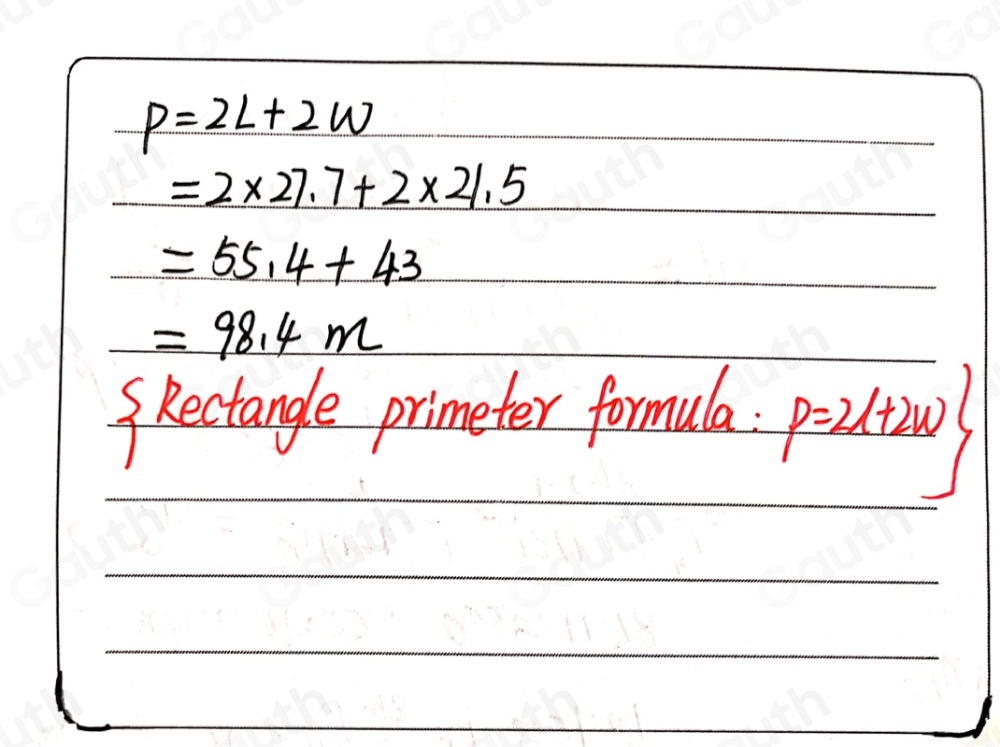 P=2L+2W
=2×27.7+2×21.5
=55.4+43
=98.4 m
{Rectangle primeter formula: P=2l+2w}